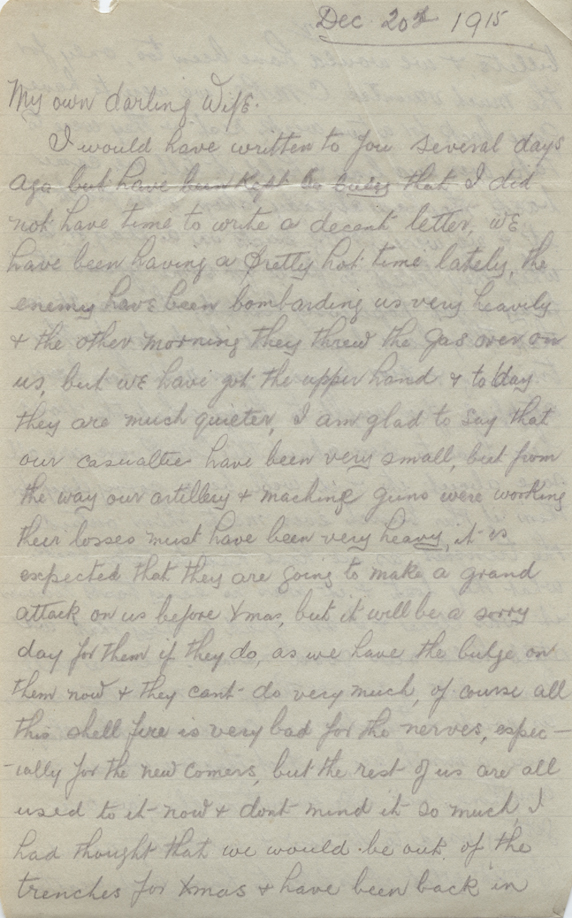 Dec 20th 1915
My own darling Wife.
I would have written to you several days
ago but have been kept so busy that I did
not have time to write a decent letter, we
have been having a pretty hot time lately, the
enemy have been bombarding us very heavily
& the other morning they threw the gas over on
us, but we have got the upper hand & to day
they are much quieter, I am glad to say that
our casualties have been very small, but from
the way our artillery & machine guns were working
their losses must have been very heavy, it is
expected that they are going to make a grand
attack on us before Xmas, but it will be a sorry
day for them if they do, as we have the bulge on
them now & they cant do very much, of course all
this shell fire is very bad for the nerves, espec-
-ially for the new comers, but the rest of us are all
used to it now & dont mind it so much, I
had thought that we would be out of the
trenches for Xmas & have been back in